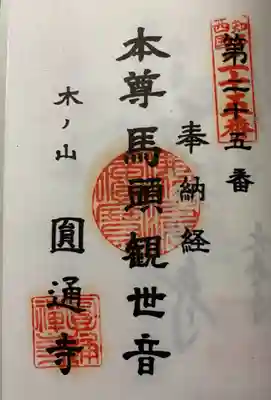 第二十五番
奉納経
本尊馬頭観世音
木ノ山
圓通寺